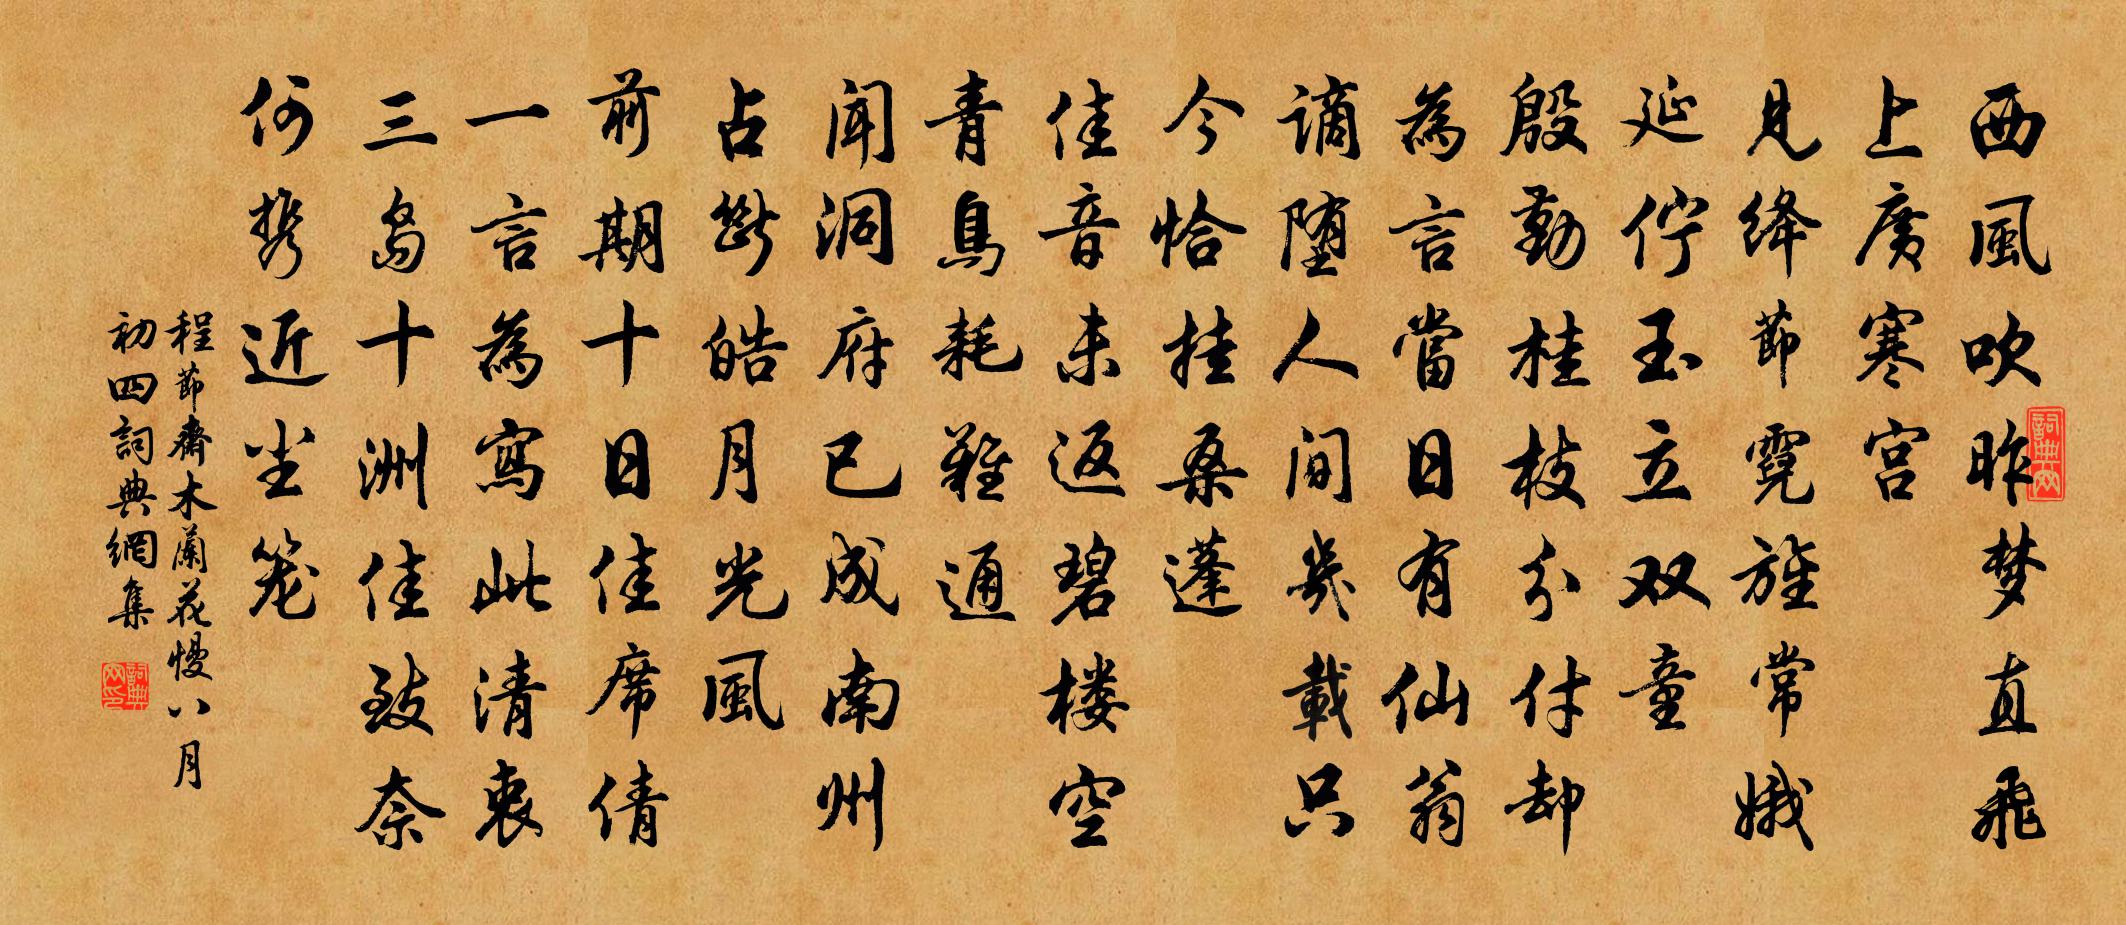 西風吹昨梦直飛
上廣寒宫
見绛節霓旌常娥
延佇玉立双童
殷勤桂枝分付却
為言當日有仙翁
謫堕人间幾載只
今恰挂桑蓬
佳音未返碧楼空
青鳥耗難通
闻洞府已成南州
占断皓月光風
前期十日佳席倩
一言為寫此清衷
三島十洲佳致奈
何携近尘笼
程節齋木蘭花慢八月
初四詞典網集
詞典网
詞典网印